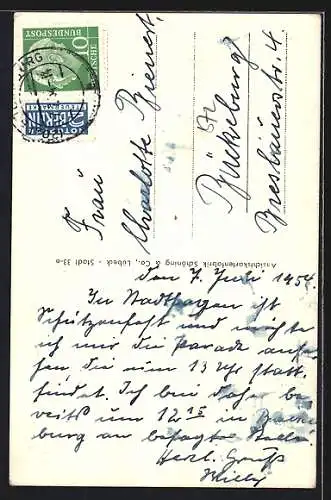 den 7. Juli 1954.
In Stadthagen ist
Schützenfest und möchte
ich mir die Parade anse-
hen die um 13 Uhr statt-
findet. Ich bin daher be-
reits um 12 15 in Bücke-
burg an besagter Stelle.
Herzl. Gruß
Willy
Frau
Charlotte Bienert,
Bückeburg
Breslauerstr. 4
Ansichtskartenfabrik Schöning & Co., Lübeck - Stadt 33-a
10
DEUTSCHE
BUNDESPOST
2 BERLIN
STEUERMARKE
NOTOPFER